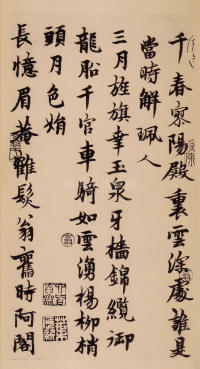 千春陽殿裏雲深處誰是
當時解珮人
三月旌旗幸玉泉牙檣錦纜御
龍船千官車騎如雲湧楊柳梢
頭月色娟
長憶眉菴髮翁舊時阿閣